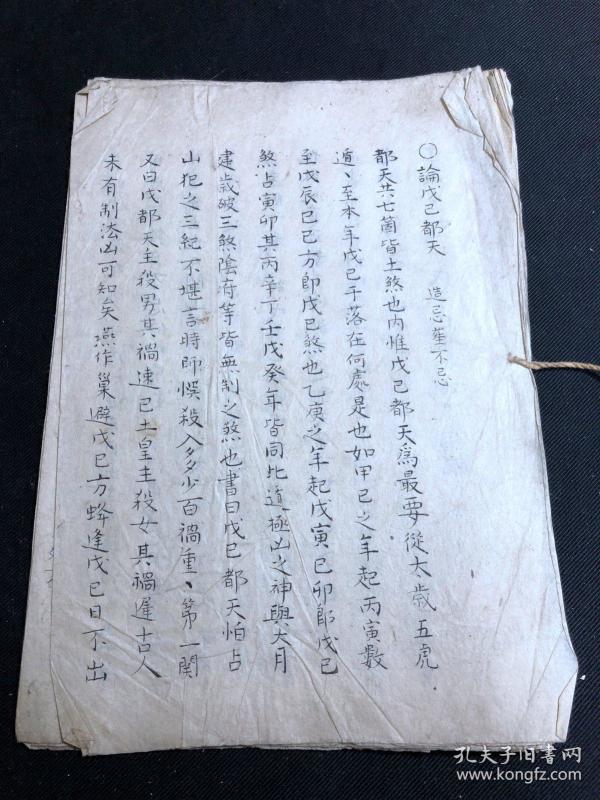 〇論戊己都天　造忌葬不忌
都天共七箇皆土煞也內惟戊己都天爲最要從太歲五虎
遁、至本年戊己干落在何處是也如甲己之年起丙寅數
至戊辰己巳方卽戊己煞也乙庚之年起戊寅己卯卽戊己
煞占寅卯其丙辛丁壬戊癸年皆同此遁極凶之神與大月
建歲破三煞陰府等皆無制之煞也書曰戊己都天怕占
山犯之三紀不堪言時師悞殺人多少百禍重、第一関
又曰戊都天主殺男其禍速己土皇主殺女其禍遲古人
未有制法凶可知矣燕作巢避戊己方蜂逢戊己日不出
孔夫子旧书网
www.kongfz.com